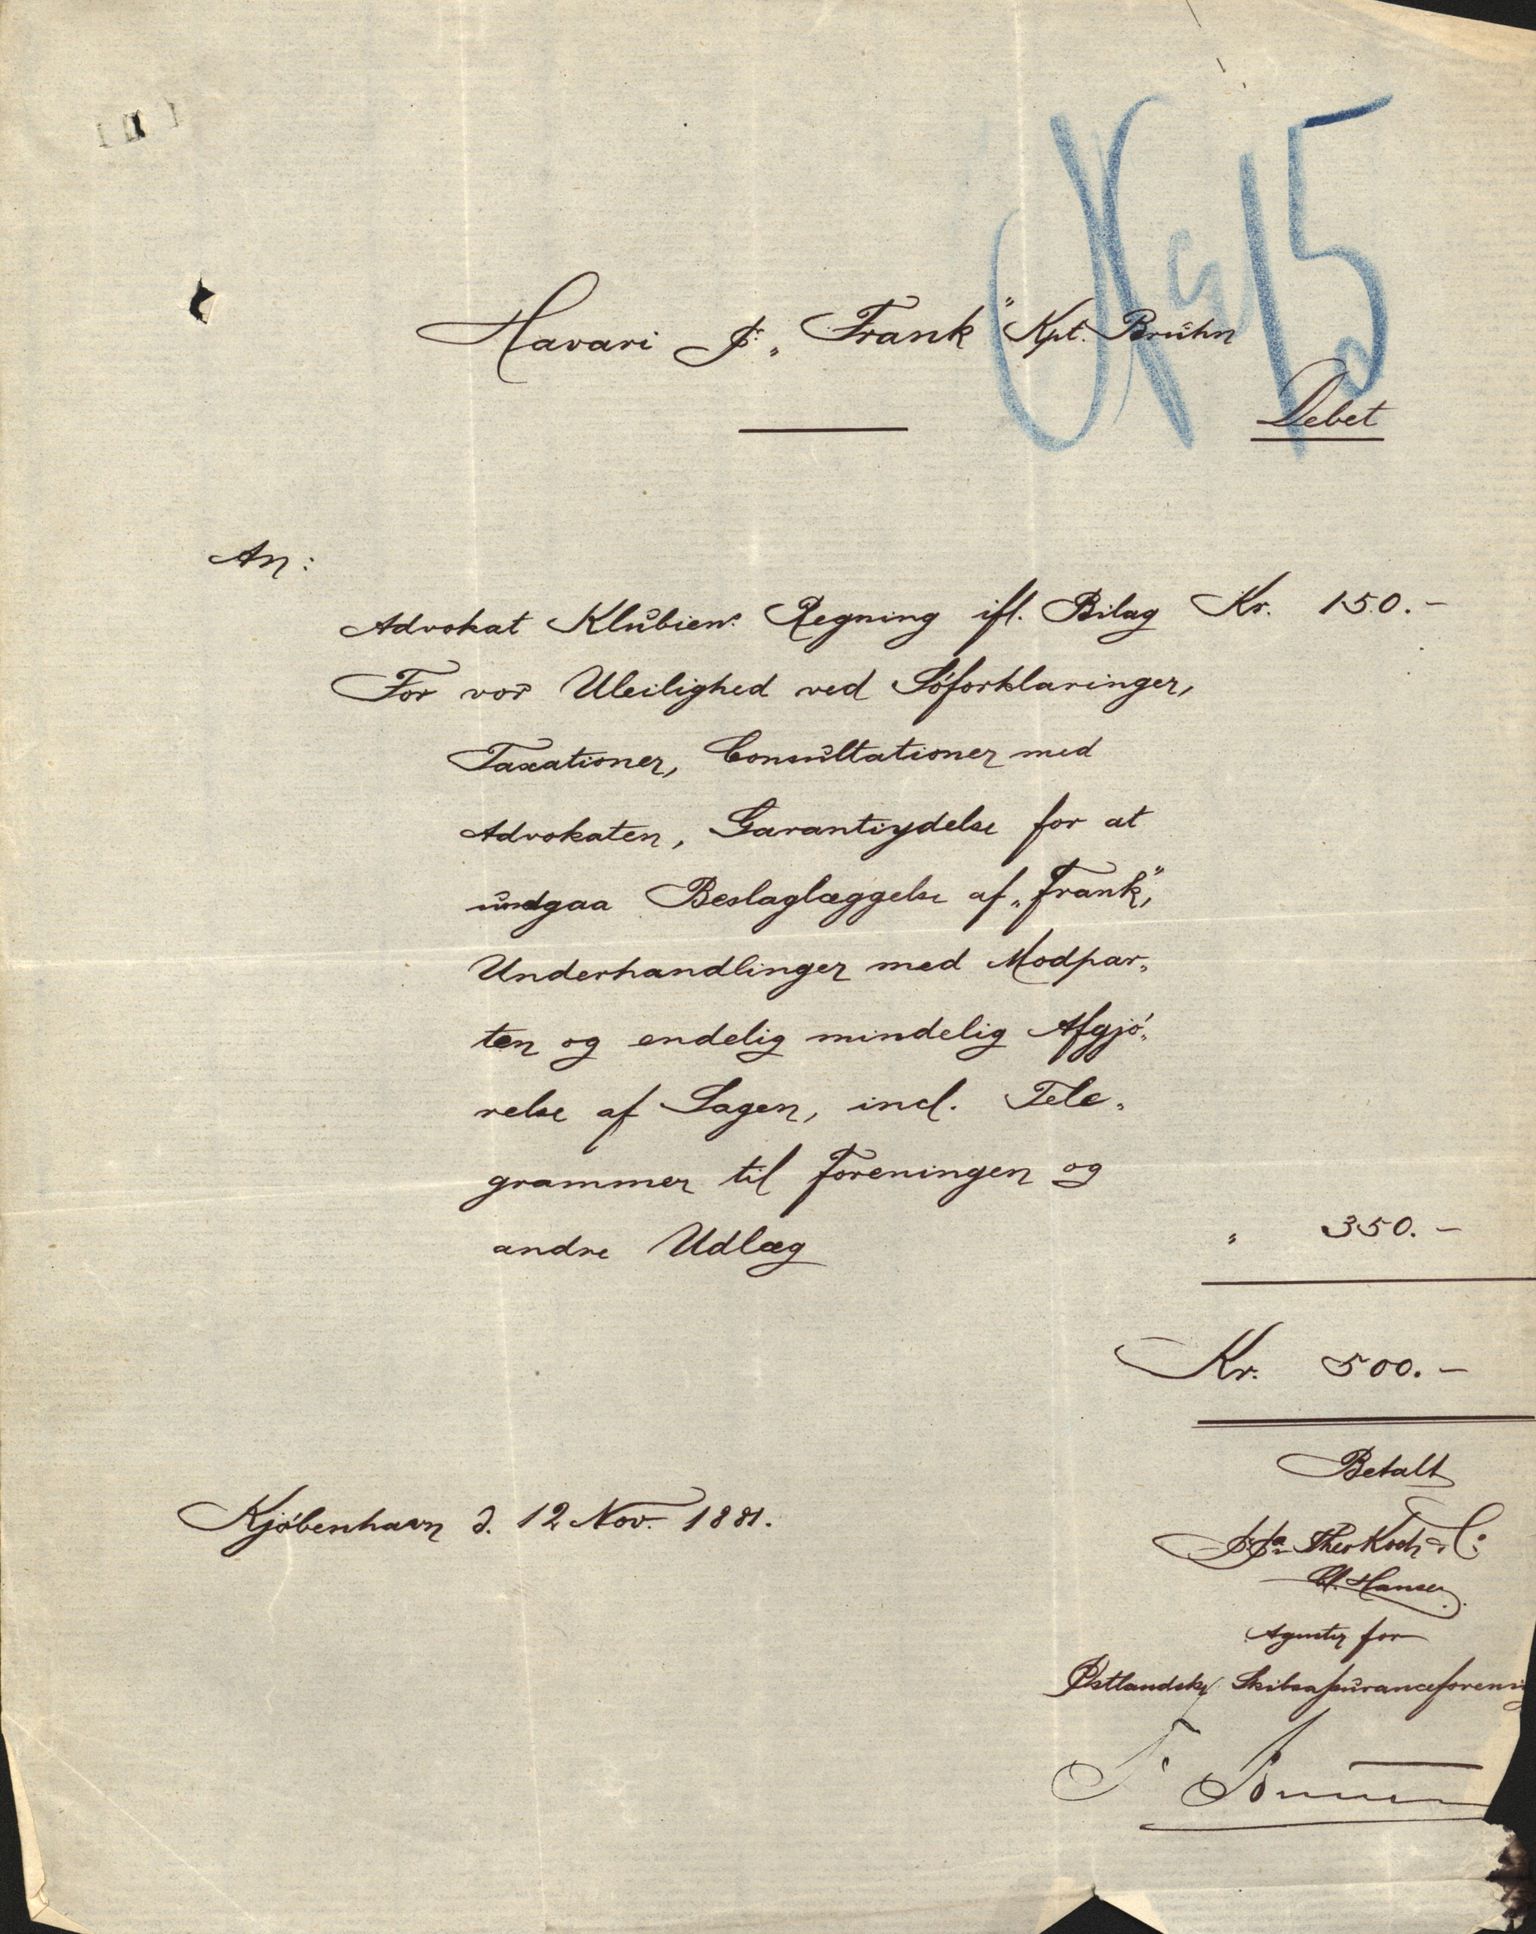 No 15
Havari pr. „Frank“ Kpt. Brŭhn
Debet
An:
Advokat Klŭbiens Regning ifl. Bilag Kr. 150.-
For vor Uleilighed ved Söforklaringer,
Taxationer, Consŭltationer med
Advokaten, Garantiydelse for at
ŭndgaa Beslaglæggelse af „Frank“,
Underhandlinger med Modpar„
ten og endelig mindelig Afgjö„
relse af Sagen, incl. Tele„
grammer til Foreningen og
andre Udlæg „ 350.-
Kr. 500.-
Betalt
Kjöbenhavn d. 12 Nov. 1881.
ppa Theo Koch & Co
Hansen
Agenter for
Østlandske Skibsassŭranceforening